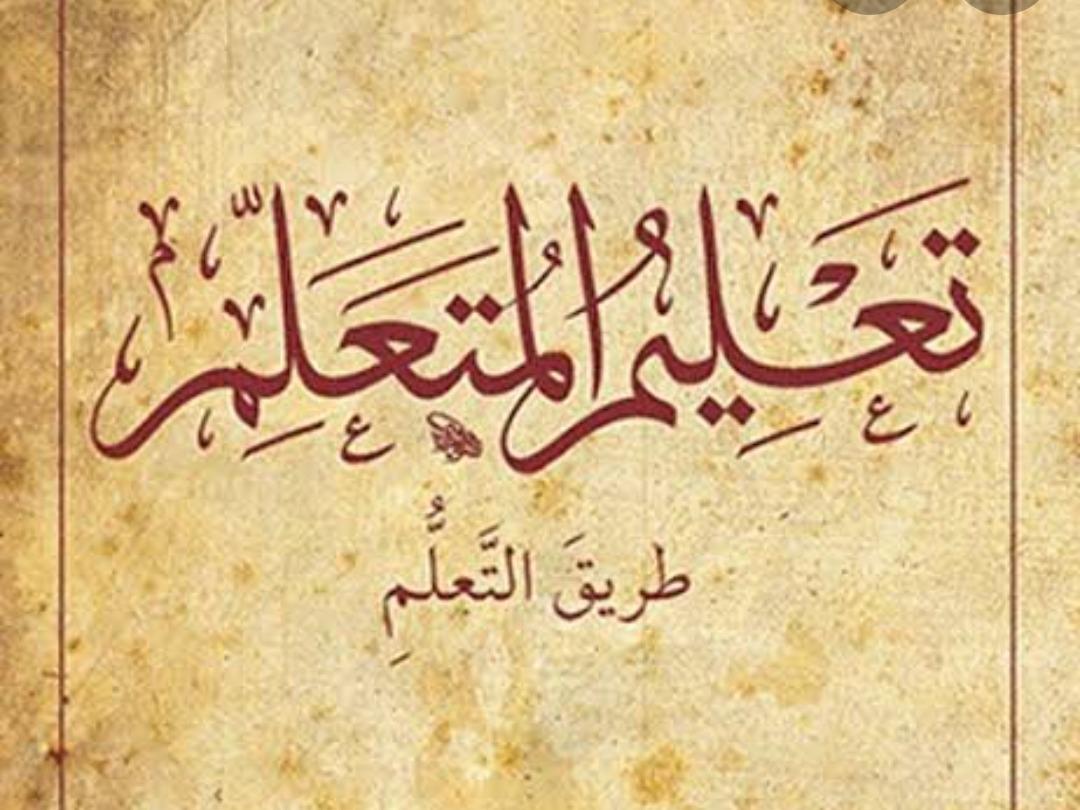 تعْلِيمُ المُتعَلِّم
طريقَ التَّعلُّمِ